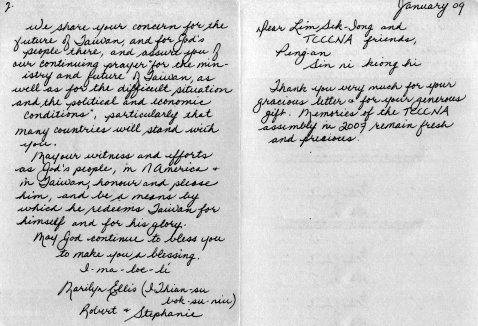 January 09
Dear Lim Sek-Iong and
TCCCNA friends,
Peng-an
Sin ni keong hi
Thank you very much for your
gracious letter & for your generous
gift. Memories of the TCCCNA
assembly in 2007 remain fresh
and precious.
2.
We share your concern for the
future of Taiwan, and for God's
people there, and assure you of
our continuing prayer "for the min-
istry and future of Taiwan, as
well as for the difficult situation
and the political and economic
conditions", particularly that
many countries will stand with
you.
May our witness and efforts
as God's people, in N America &
in Taiwan, honour and please
him, and be a means by
which he redeems Taiwan for
himself and for his glory.
May God continue to bless you
to make you a blessing.
I-ma-loe-li
Marilyn Ellis (I Thian-su
bok-su-niu)
Robert & Stephanie